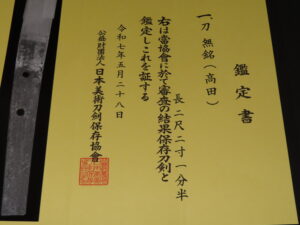 鑑定書
一、刀 無銘(高田)
長 二尺二寸一分半
右は當協會に於て審査の結果保存刀剣と
鑑定しこれを証する
令和七年五月二十八日
公益財団法人 日本美術刀剣保存協會